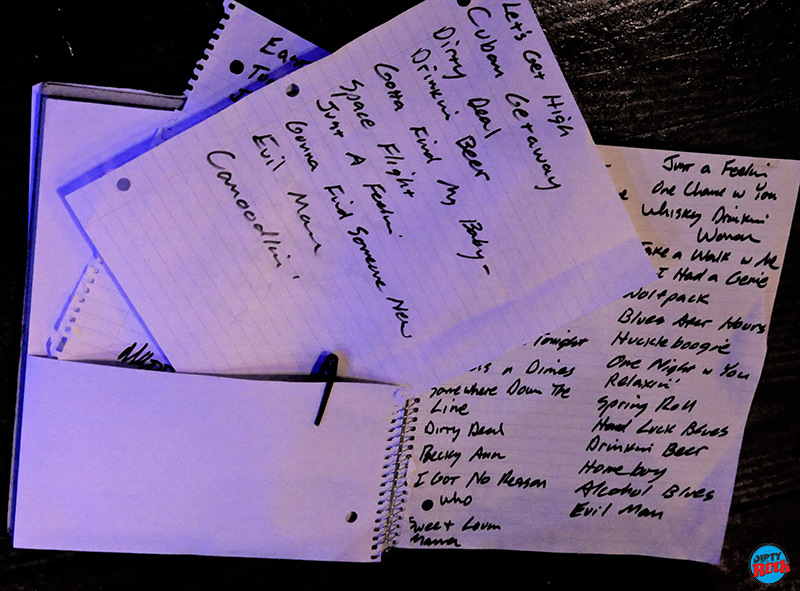 Let's Get High
Cuban Getaway
Dirty Deal
Drinkin Beer
Gotta Find My Baby-
Space Flight
Just A Feelin
Gonna Find Someone New
Evil Man
Canoodlin'
Tonight
n Dimes
Somewhere Down The
Line
Dirty Deal
Becky Ann
I Got No Reason
Who
Sweet Lovin
Mama
Just a Feelin
One Chance w You
Whiskey Drinkin'
Woman
Take a Walk w Me
I Had a Genie
Wolfpack
Blues After Hours
Huckleboogie
One Night w You
Relaxin'
Spring Roll
Hard Luck Blues
Drinkin Beer
Homeboy
Alcohol Blues
Evil Man
DIRTY
Rock